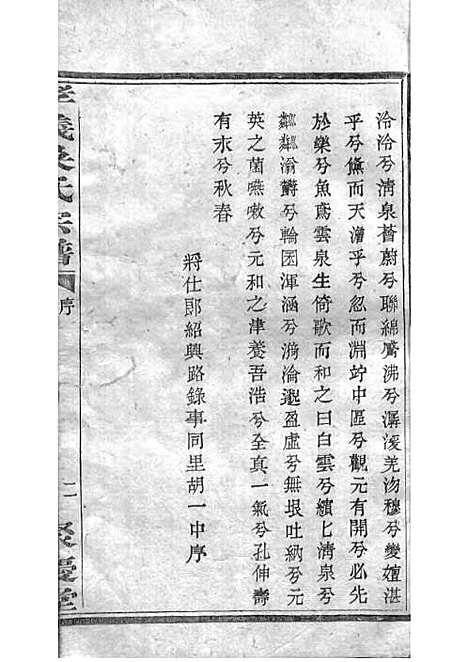 泠泠兮清泉薈蔚兮聯綿觱沸兮潺湲羌沕穆兮變嬗湛
乎兮儵而天澹乎兮忽而淵竚中區兮觀元有開兮必先
於樂兮魚鳶雲泉生倚歌而和之曰白雲兮繽匕清泉兮
粼粼滃欝兮輪囷渾涵兮漪淪邈盈虛兮無垠吐納兮元
英之菌嚥嗽兮元和之津養吾浩兮全真一氣兮孔伸壽
有永兮秋春
將仕郎紹興路錄事同里胡一中序
義吳氏宗譜
序
二
慶堂